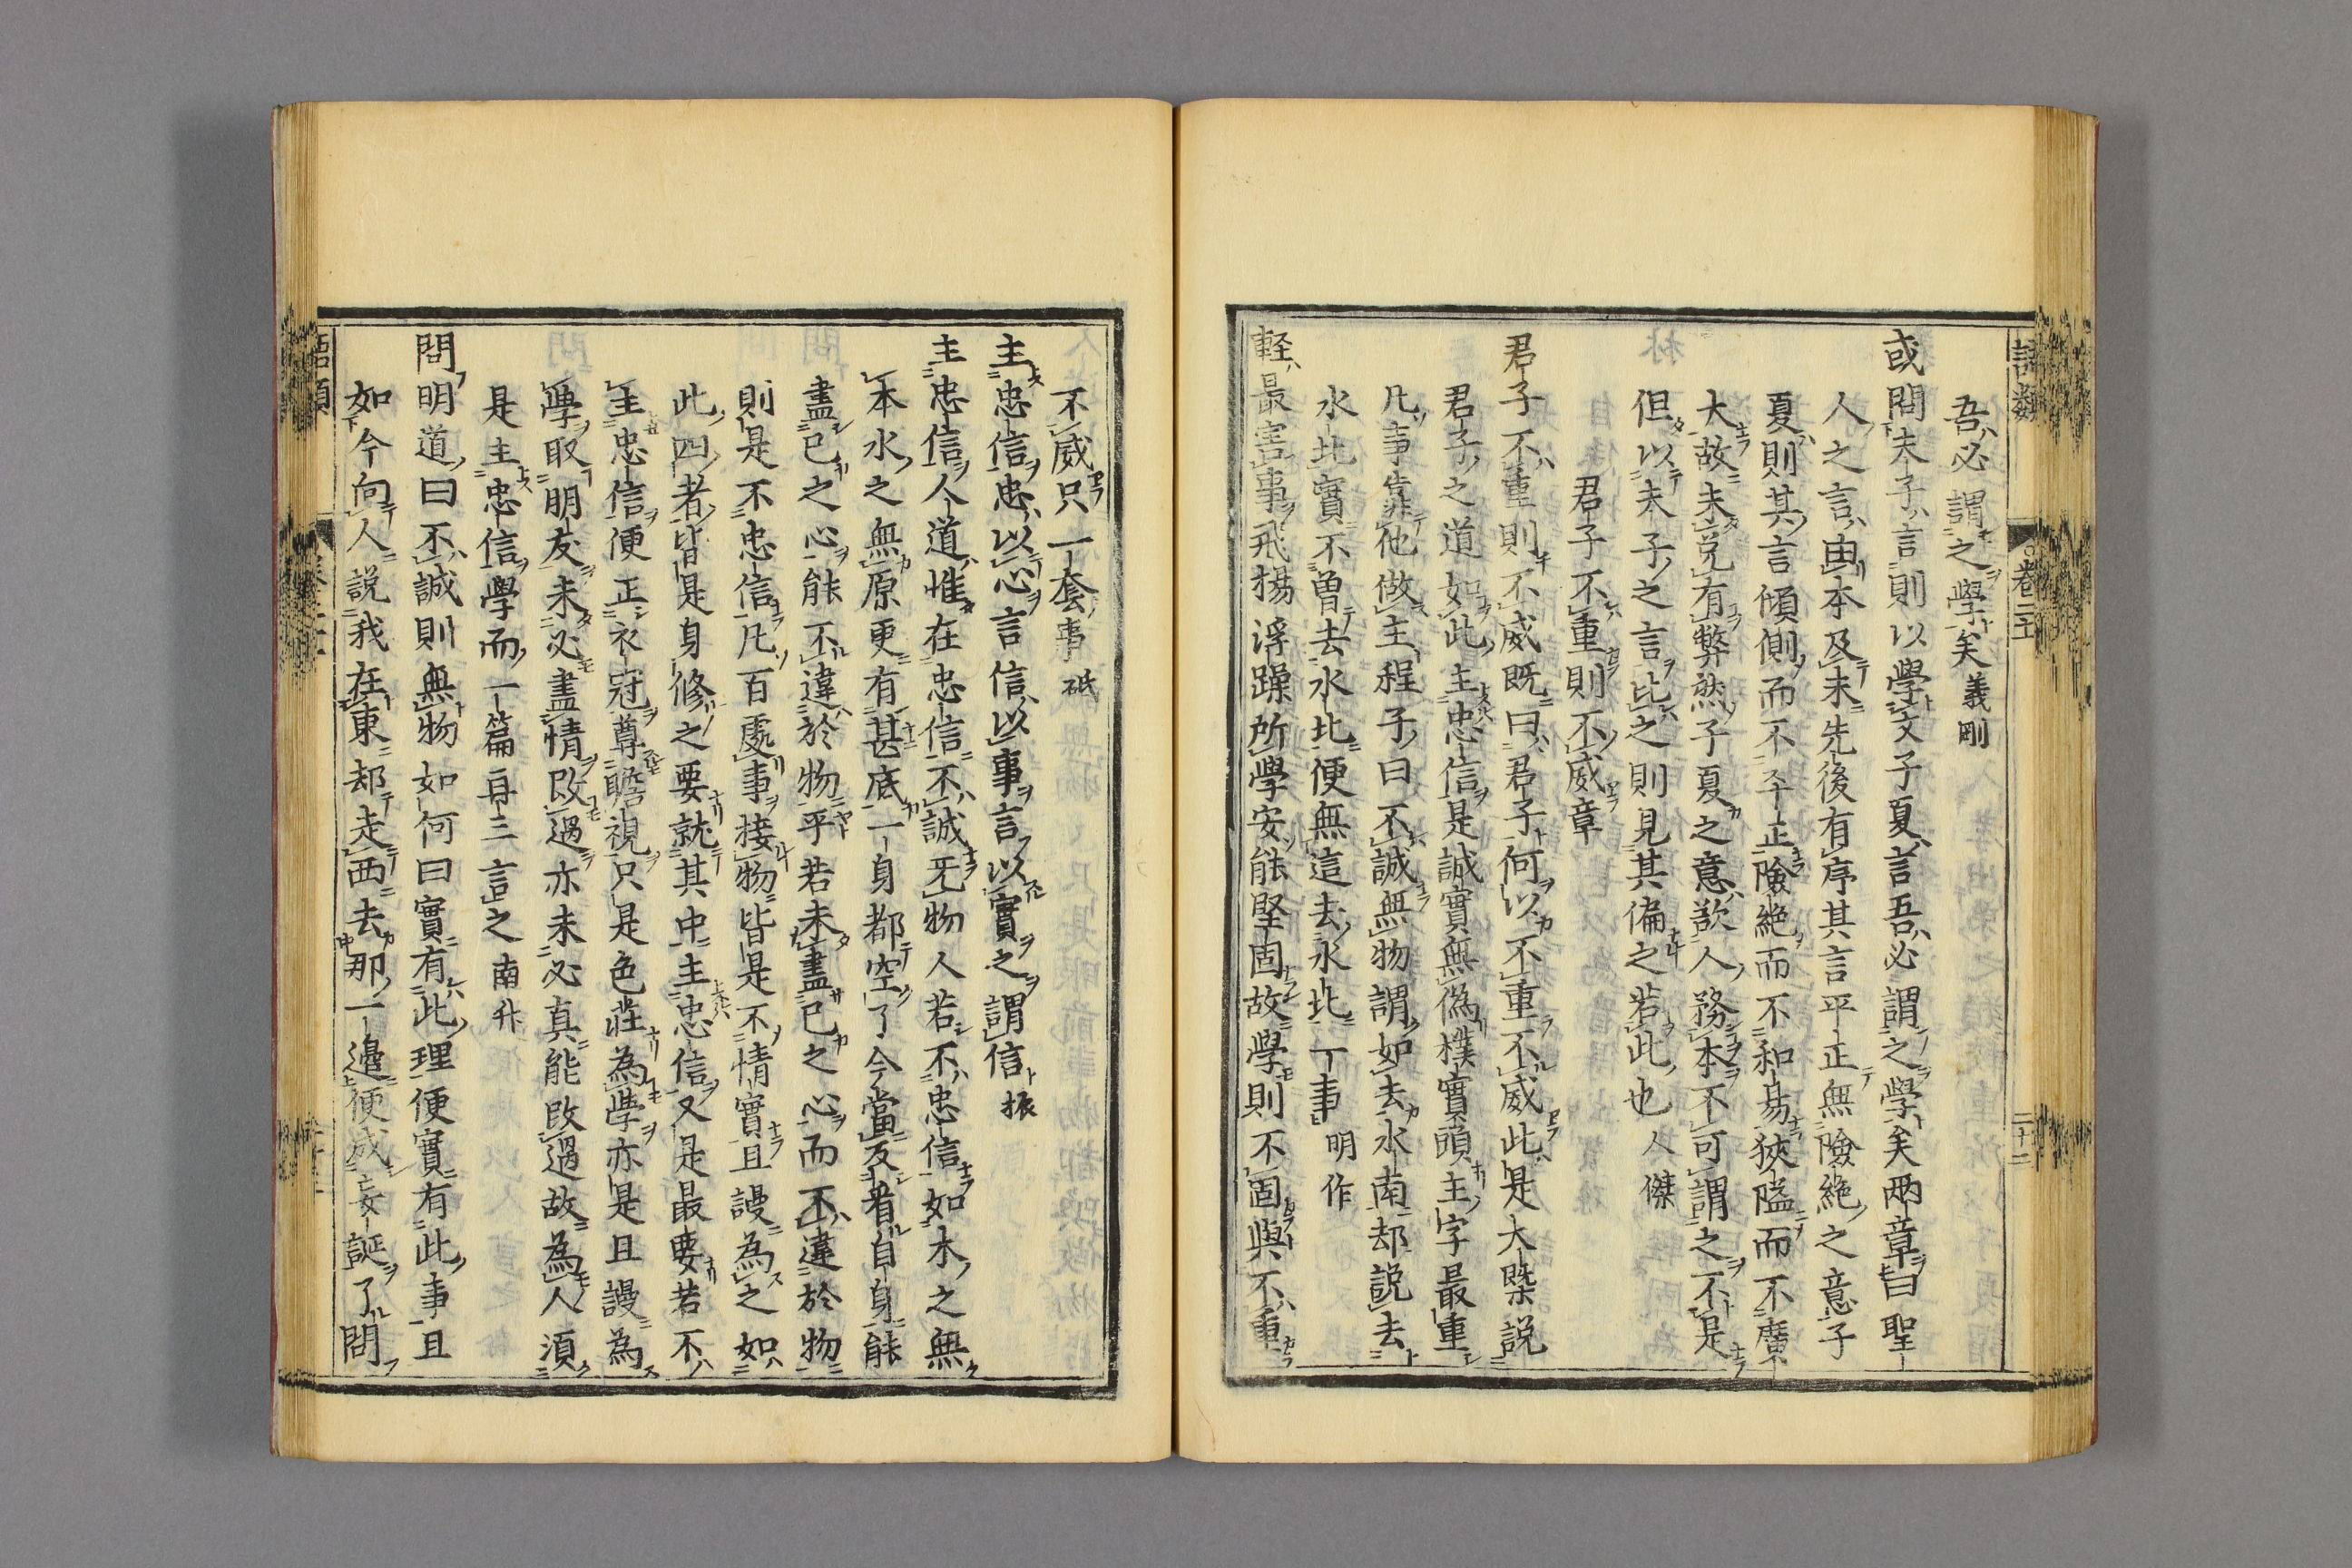 語類
卷二十一
二十二
吾必謂之學矣義剛
或問夫子言則以學文子夏言吾必謂之學矣兩章曰聖
人之言由本及末先後有序其言平正無險絶之意子
夏則其言傾側而不平正險絶而不和易狹隘而不廣
大故未免有弊然子夏之意欲人務本不可謂之不是
但以夫子之言比之則見其偏之若此也人傑
君子不重則不威章
君子不重則不威既曰君子何以不重不威此是大槩説
君子之道如此主忠信是誠實無僞樸實頭主字最重
凡事靠他做主程子曰不誠無物謂如去水南却説去
水北實不曽去水北便無這去水北一事明作
軽最害事飛揚浮躁所學安能堅固故學則不固與不重
不威只一套事砥
主忠信忠以心言信以事言以實之謂信振
主忠信人道惟在忠信不誠无物人若不忠信如木之無
本水之無原更有甚底一身都空了今當反看自身能
盡己之心能不違於物乎若未盡己之心而不違於物
則是不忠信凡百處事接物皆是不情實且謾為之如
此四者皆是身修之要就其中主忠信又是最要若不
主忠信便正衣冠尊瞻視只是色莊為學亦是且謾為
學取朋友未必盡情改過亦未必真能改過故為人須
是主忠信學而一篇再三言之南升
問明道曰不誠則無物如何曰實有此理便實有此事且
如今向人説我在東却走西去那一邊便成妄誕了問
語類